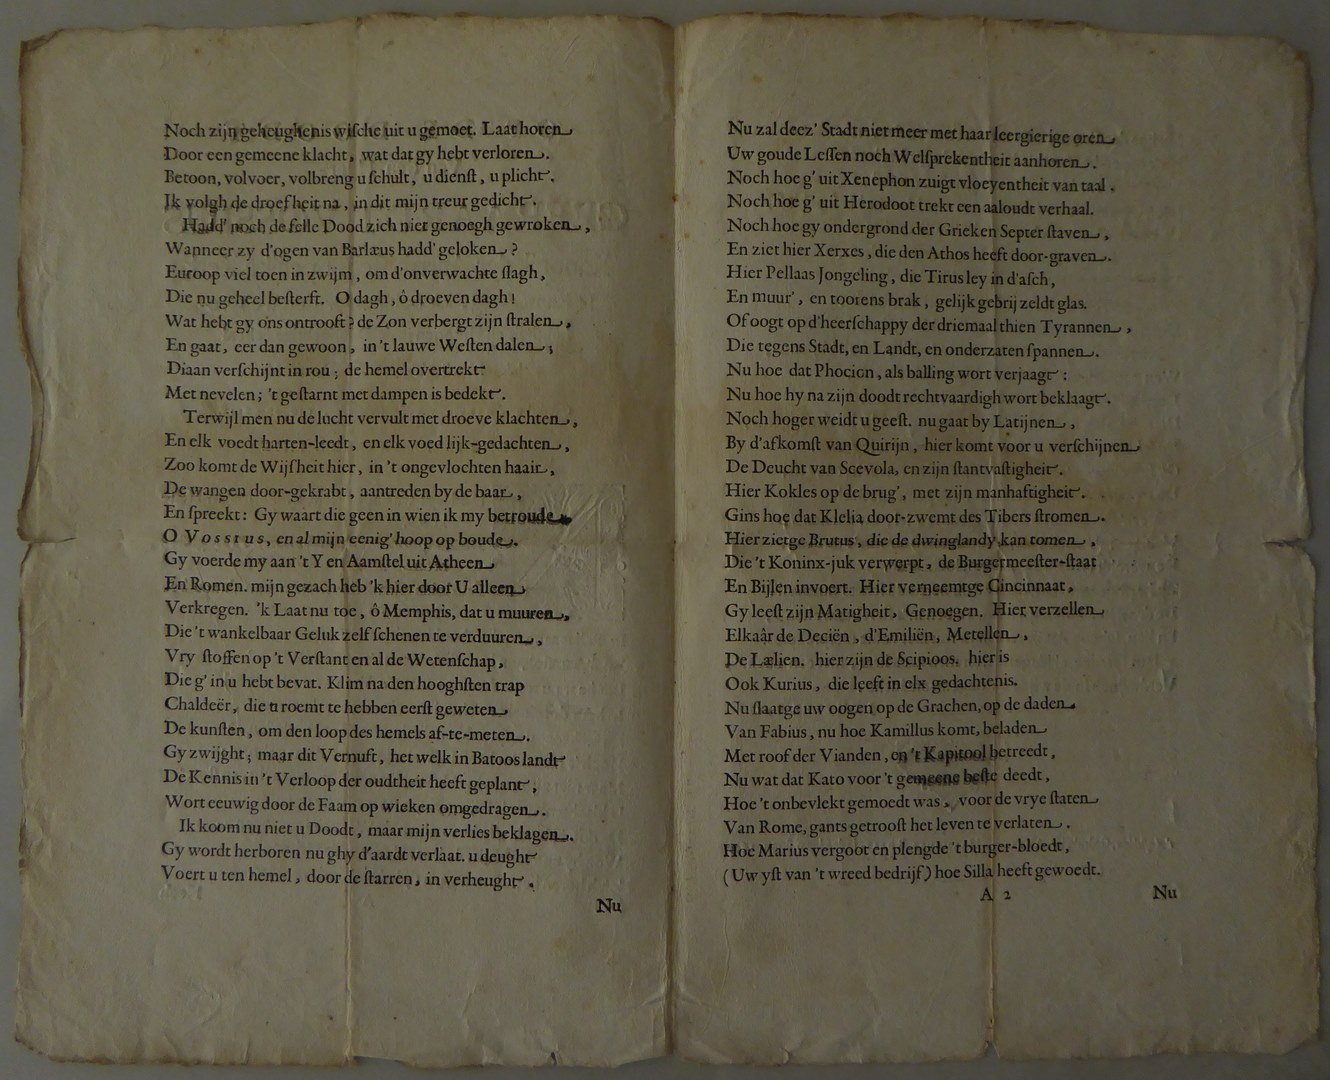 Noch zijn geheughenis wiſche uit u gemoet. Laat horen
Door een gemeene klacht, wat dat gy hebt verloren.
Betoon, volvoer, volbreng u ſchult, u dienſt, u plicht.
Ik volgh de droefheit na, in dit mijn treur gedicht.
Hadd' noch de felle Dood zich niet genoegh gewroken,
Wanneer zy d'ogen van Barlæus hadd' geloken?
Euroop viel toen in zwijm, om d'onverwachte ſlagh,
Die nu geheel beſterft. O dagh, ô droeven dagh!
Wat hebt gy ons ontrooft? de Zon verbergt zijn ſtralen,
En gaat, eer dan gewoon, in 't lauwe Weſten dalen;
Diaan verſchijnt in rou; de hemel overtrekt
Met nevelen; 't geſtarnt met dampen is bedekt.
Terwijl men nu de lucht vervult met droeve klachten,
En elk voedt harten-leedt, en elk voed lijk-gedachten,
Zoo komt de Wijſheit hier, in 't ongevlochten haair,
De wangen door-gekrabt, aantreden by de baar,
En ſpreekt: Gy waart die geen in wien ik my betroude
O Vossius, en al mijn eenig' hoop op boude.
Gy voerde my aan 't Y en Aamſtel uit Atheen
En Romen. mijn gezach heb 'k hier door U alleen
Verkregen. 'k Laat nu toe, ô Memphis, dat u muuren,
Die 't wankelbaar Geluk zelf ſchenen te verduuren,
Vry ſtoffen op 't Verſtant en al de Wetenſchap,
Die g' in u hebt bevat. Klim na den hooghſten trap
Chaldeër, die u roemt te hebben eerſt geweten
De kunſten, om den loop des hemels af-te-meten.
Gy zwijght; maar dit Vernuft, het welk in Batoos landt
De Kennis in 't Verloop der oudtheit heeft geplant,
Wort eeuwig door de Faam op wieken omgedragen.
Ik koom nu niet u Doodt, maar mijn verlies beklagen.
Gy wordt herboren nu ghy d'aardt verlaat. u deught
Voert u ten hemel, door de ſtarren, in verheught.
Nu
Nu zal deez' Stadt niet meer met haar leergierige oren
Uw goude Leſſen noch Welſprekentheit aanhoren.
Noch hoe g' uit Xenephon zuigt vloeyentheit van taal.
Noch hoe g' uit Herodoot trekt een aaloudt verhaal.
Noch hoe gy ondergrond der Grieken Septer ſtaven,
En ziet hier Xerxes, die den Athos heeft door-graven.
Hier Pellaas Jongeling, die Tirus ley in d'aſch,
En muur', en toorens brak, gelijk gebrijzeldt glas.
Of oogt op d'heerſchappy der driemaal thien Tyrannen,
Die tegens Stadt, en Landt, en onderzaten ſpannen.
Nu hoe dat Phocion, als balling wort verjaagt:
Nu hoe hy na zijn doodt rechtvaardigh wort beklaagt.
Noch hoger weidt u geeſt. nu gaat by Latijnen,
By d'afkomſt van Quirijn, hier komt voor u verſchijnen
De Deucht van Scevola, en zijn ſtantvaſtigheit.
Hier Kokles op de brug', met zijn manhaftigheit.
Gins hoe dat Klelia door-zwemt des Tibers ſtromen.
Hier zietge Brutus, die de dwinglandy kan tomen,
Die 't Koninx-juk verwerpt, de Burgermeeſter-ſtaat
En Bijlen invoert. Hier verneemtge Cincinnaat,
Gy leeſt zijn Matigheit, Genoegen. Hier verzellen
Elkaâr de Deciën, d'Emiliën, Metellen,
De Lælien. hier zijn de Scipioos, hier is
Ook Kurius, die leeft in elx gedachtenis.
Nu ſlaatge uw oogen op de Grachen, op de daden
Van Fabius, nu hoe Kamillus komt, beladen
Met roof der Vianden, en 't Kapitool betreedt,
Nu wat dat Kato voor 't gemeene beſte deedt,
Hoe 't onbevlekt gemoedt was, voor de vrye ſtaten
Van Rome, gants getrooſt het leven te verlaten.
Hoe Marius vergoot en plengde 't burger-bloedt,
(Uw yſt van 't wreed bedrijf) hoe Silla heeft gewoedt.
A 2
Nu